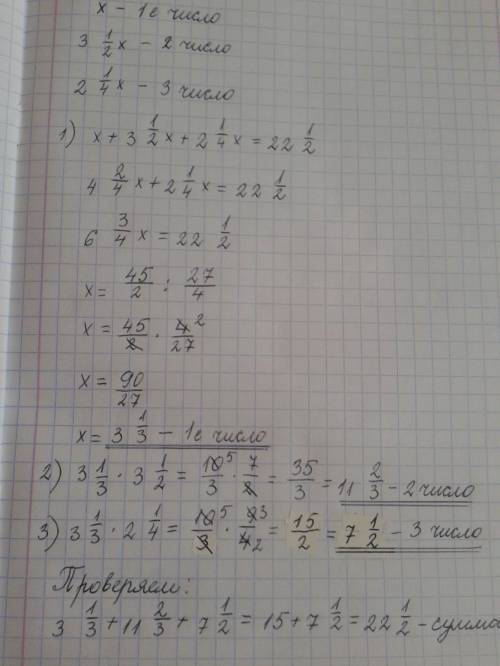 x - 1е число
3 1/2 x - 2 число
2 1/4 x - 3 число
1) x + 3 1/2 x + 2 1/4 x = 22 1/2
4 2/4 x + 2 1/4 x = 22 1/2
6 3/4 x = 22 1/2
x = 45/2 : 27/4
x = 45/2 · 4 2/27
x = 90/27
x = 3 1/3 - 1е число
2) 3 1/3 · 3 1/2 = 10 5/3 · 7/2 = 35/3 = 11 2/3 - 2 число
3) 3 1/3 · 2 1/4 = 10 5/3 · 9 3/4 2 = 15/2 = 7 1/2 - 3 число
Проверяем:
3 1/3 + 11 2/3 + 7 1/2 = 15 + 7 1/2 = 22 1/2 - сумма